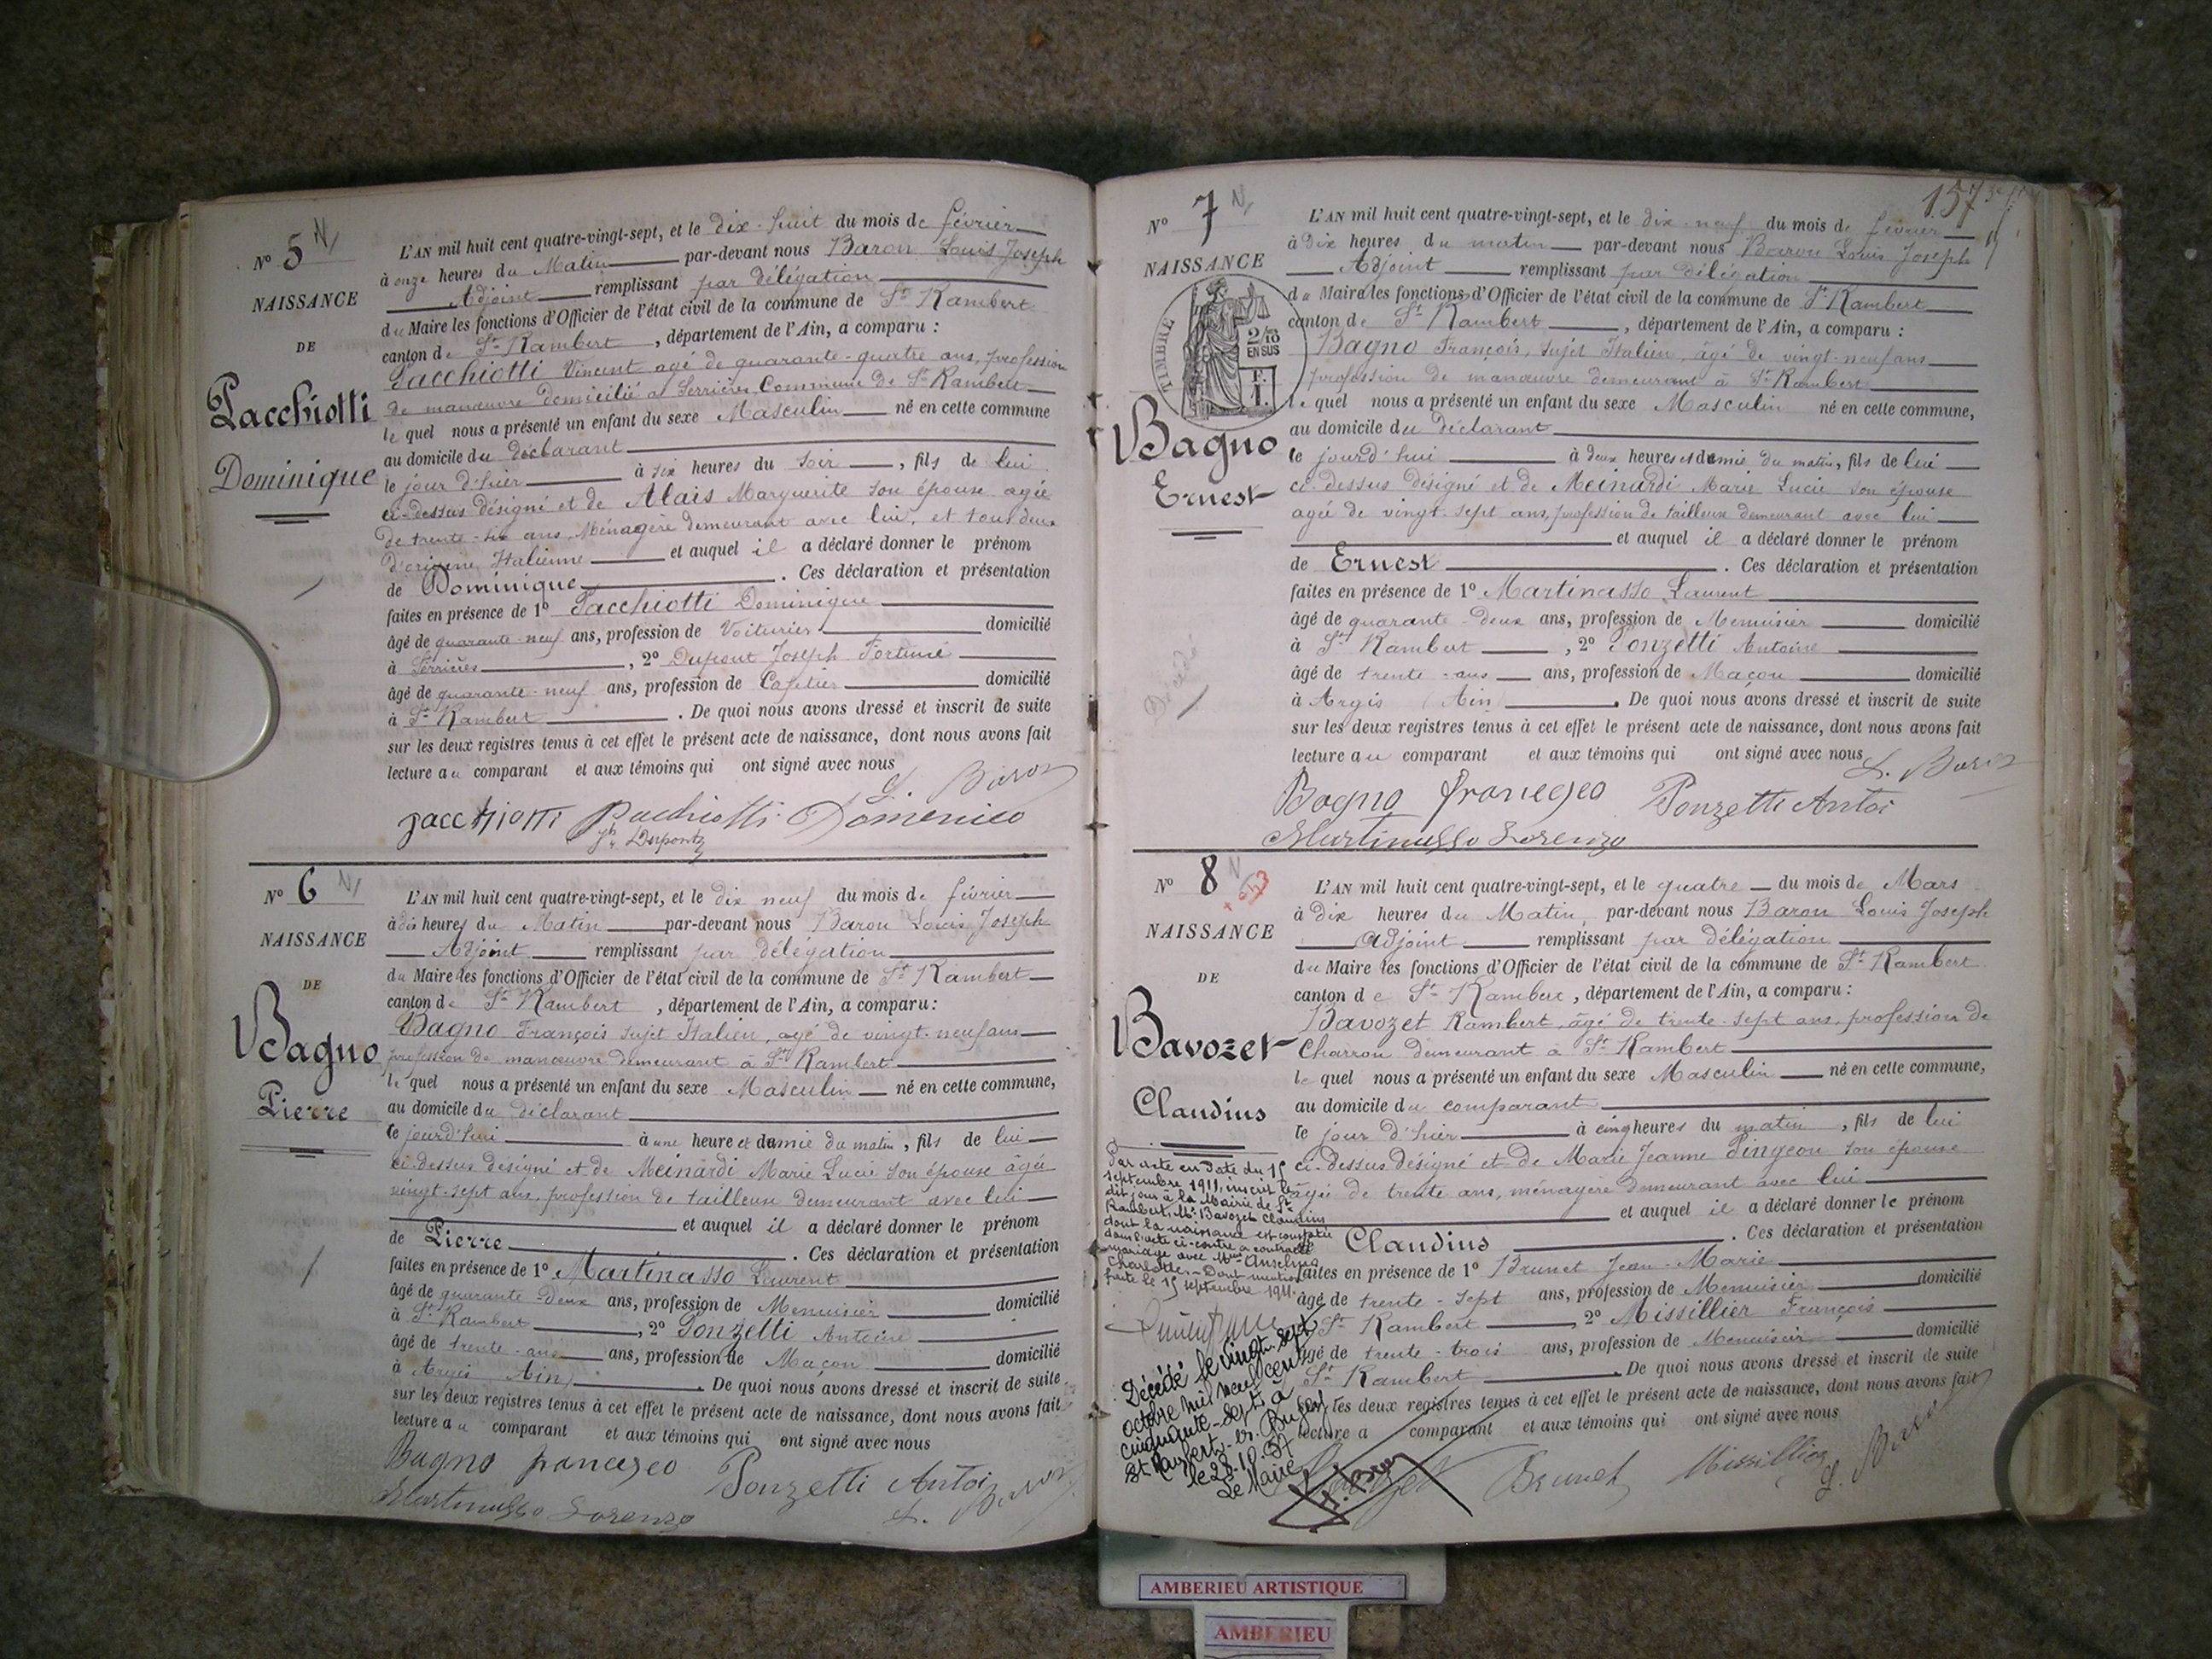 Nº 5
NAISSANCE
DE
Pacchiotti
Dominique
L'AN mil huit cent quatre-vingt-sept, et le dix-huit du mois de février
à onze heures du Matin par-devant nous Baron Louis Joseph
Adjoint remplissant par délégation
du Maire les fonctions d'Officier de l'état civil de la commune de St Rambert
canton de St Rambert, département de l'Ain, a comparu :
Pacchiotti Vincent agé de quarante-quatre ans, profession
de manœuvre domicilié à Serrières Commune de St Rambert
lequel nous a présenté un enfant du sexe Masculin né en cette commune
au domicile du déclarant
le jour d'hier à six heures du soir, fils de lui
ci-dessus désigné et de Alais Marguerite son épouse agée
de trente-six ans, Ménagère demeurant avec lui, et tous deux
d'origine Italienne et auquel il a déclaré donner le prénom
de Dominique. Ces déclaration et présentation
faites en présence de 1º Pacchiotti Dominique
âgé de quarante-neuf ans, profession de Voiturier domicilié
à Serrières, 2º Dupont Joseph Fortuné
âgé de quarante-neuf ans, profession de Cafetier domicilié
à St Rambert. De quoi nous avons dressé et inscrit de suite
sur les deux registres tenus à cet effet le présent acte de naissance, dont nous avons fait
lecture au comparant et aux témoins qui ont signé avec nous
L. Baron
pacchiotti Pacchiotti Domenico
Jh Dupont
Nº 6
NAISSANCE
DE
Bagno
Pierre
L'AN mil huit cent quatre-vingt-sept, et le dix neuf du mois de février
à dix heures du Matin par-devant nous Baron Louis Joseph
Adjoint remplissant par délégation
du Maire les fonctions d'Officier de l'état civil de la commune de St Rambert
canton de St Rambert, département de l'Ain, a comparu :
Bagno François sujet Italien, agé de vingt-neuf ans
profession de manœuvre demeurant à St Rambert
lequel nous a présenté un enfant du sexe Masculin né en cette commune,
au domicile du déclarant
le jourd'hui à une heure et demie du matin, fils de lui
ci-dessus désigné et de Meinardi Marie Lucie son épouse âgée
vingt-sept ans, profession de tailleuse demeurant avec lui
et auquel il a déclaré donner le prénom
de Pierre. Ces déclaration et présentation
faites en présence de 1º Martinasso Laurent
âgé de quarante-deux ans, profession de Menuisier domicilié
à St Rambert, 2º Ponzetti Antoine
âgé de trente-ans ans, profession de Maçon domicilié
à Argis (Ain). De quoi nous avons dressé et inscrit de suite
sur les deux registres tenus à cet effet le présent acte de naissance, dont nous avons fait
lecture au comparant et aux témoins qui ont signé avec nous
Bagno francesco Ponzetti Antoi
Martinasso Lorenzo L. Baron
157
Nº 7
NAISSANCE
TIMBRE
2/10
EN SUS
Bagno
Ernest
Décédé
L'AN mil huit cent quatre-vingt-sept, et le dix-neuf du mois de février
à dix heures du matin par-devant nous Baron Louis Joseph
Adjoint remplissant par délégation
du Maire les fonctions d'Officier de l'état civil de la commune de St Rambert
canton de St Rambert, département de l'Ain, a comparu :
Bagno François, sujet Italien, âgé de vingt-neuf ans
profession de manœuvre demeurant à St Rambert
lequel nous a présenté un enfant du sexe Masculin né en cette commune,
au domicile du déclarant
le jourd'hui à deux heures et demie du matin, fils de lui
ci-dessus désigné et de Meinardi Marie Lucie son épouse
agée de vingt-sept ans, profession de tailleuse demeurant avec lui
et auquel il a déclaré donner le prénom
de Ernest. Ces déclaration et présentation
faites en présence de 1º Martinasso Laurent
âgé de quarante-deux ans, profession de Menuisier domicilié
à St Rambert, 2º Ponzetti Antoine
âgé de trente-ans ans, profession de Maçon domicilié
à Argis (Ain). De quoi nous avons dressé et inscrit de suite
sur les deux registres tenus à cet effet le présent acte de naissance, dont nous avons fait
lecture au comparant et aux témoins qui ont signé avec nous
L. Baron
Bagno francesco Ponzetti Antoi
Martinasso Lorenzo
Nº 8
NAISSANCE
DE
Bavozet
Claudius
L'AN mil huit cent quatre-vingt-sept, et le quatre du mois de Mars
à dix heures du Matin, par-devant nous Baron Louis Joseph
adjoint remplissant par délégation
du Maire les fonctions d'Officier de l'état civil de la commune de St Rambert
canton de St Rambert, département de l'Ain, a comparu :
Bavozet Rambert, âgé de trente-sept ans, profession de
Charron demeurant à St Rambert
lequel nous a présenté un enfant du sexe Masculin né en cette commune,
au domicile du comparant
le jour d'hier à cinq heures du matin, fils de lui
ci-dessus désigné et de Marie Jeanne Pingeon son épouse
âgée de trente ans, ménagère demeurant avec lui
et auquel il a déclaré donner le prénom
Claudius. Ces déclaration et présentation
faites en présence de 1º Brunet Jean-Marie
âgé de trente-sept ans, profession de Menuisier domicilié
St Rambert, 2º Missillier François
âgé de trente-trois ans, profession de Menuisier domicilié
St Rambert. De quoi nous avons dressé et inscrit de suite
sur les deux registres tenus à cet effet le présent acte de naissance, dont nous avons fait
lecture a comparant et aux témoins qui ont signé avec nous
Bavozet Brunet Missillier L. Baron
Par acte en date du 15
septembre 1911, inscrit le
dit jour à la Mairie de St
Rambert, Mr Bavozet Claudius
dont la naissance est constatée
dans l'acte ci-contre a contracté
mariage avec Mlle Anselme
Charlotte. Dont mention
faite le 15 septembre 1911.
Décédé le vingt-sept
octobre mil neuf cent
cinquante-sept à
St Rambert-en-Bugey
le 28.10.57
Le Maire
AMBERIEU ARTISTIQUE
AMBERIEU